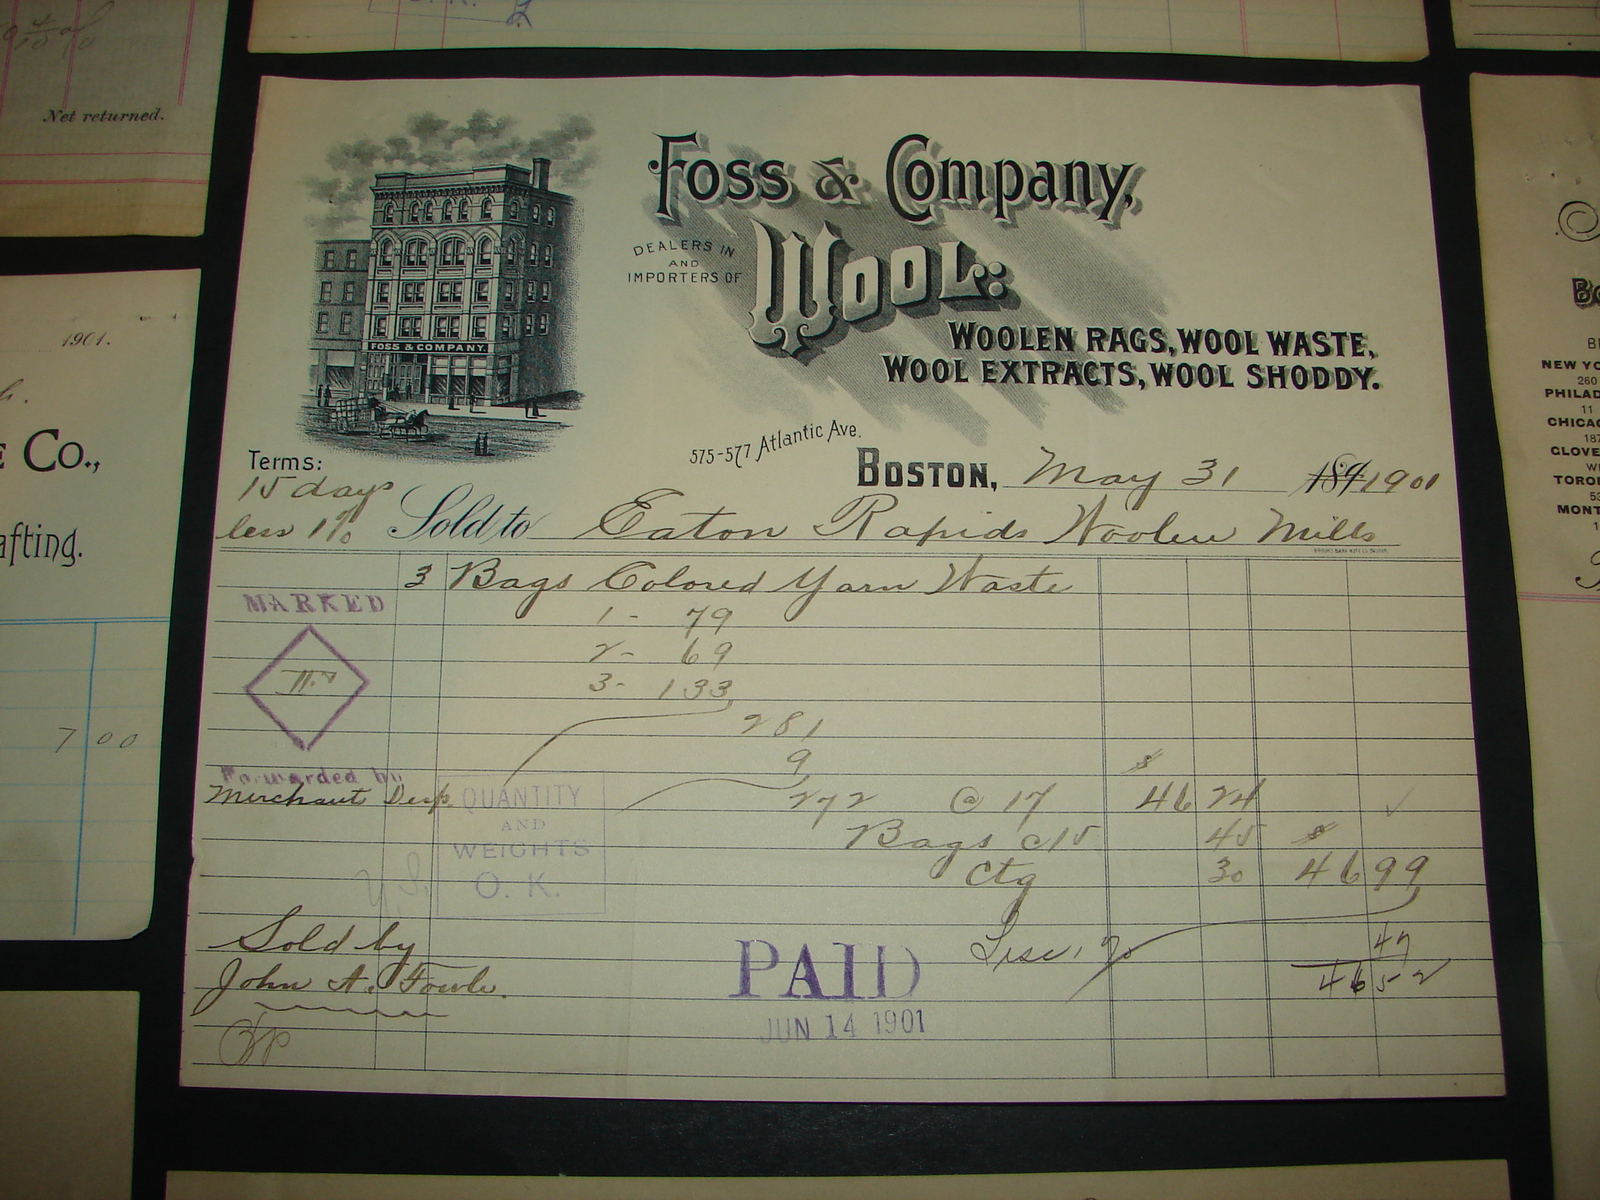 Net returned.
1901.
E Co.,
afting.
7 00
FOSS & COMPANY.
Foss & Company,
DEALERS IN
AND
IMPORTERS OF
WOOL:
WOOLEN RAGS, WOOL WASTE,
WOOL EXTRACTS, WOOL SHODDY.
575-577 Atlantic Ave.
BOSTON, May 31 189 1901
Terms:
15 days
less 1%
Sold to Eaton Rapids Woolen Mills
3 Bags Colored Yarn Waste
MARKED
1- 79
2- 69
3- 133
281
9
$
Forwarded by
Merchants Desp.
272 @ 17 46 24
QUANTITY
AND
WEIGHTS
O. K.
Bags @ 15 45 $
Ctg 30 46 99
Disc. 1% 47
46 52
Sold by
John A. Fowle.
PAID
JUN 14 1901
NEW YO
260
PHILAD
11
CHICAG
187
GLOVE
TORO
MONT